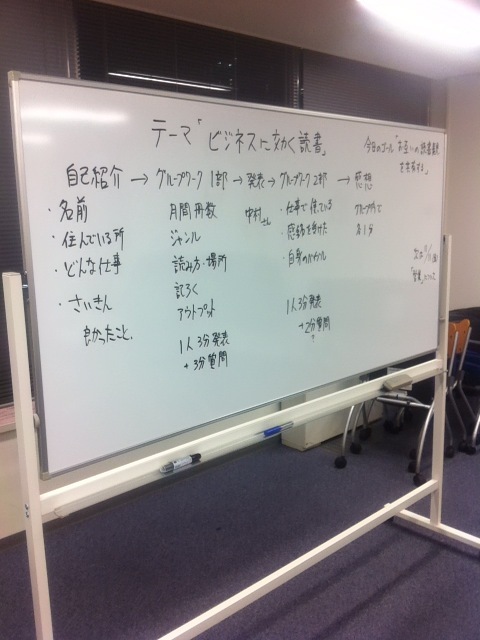 テーマ「ビジネスに効く読書」
今日のゴール「お互いの読書観
を共有する」
自己紹介 → グループワーク 1部 → 発表 → グループワーク 2部 → 感想
・名前
・住んでいる所
・どんな仕事
・さいきん
良かったこと。
月間冊数
ジャンル
読み方・場所
記ろく
アウトプット
1人3分発表
+3分質問
中村さん
・仕事で使っている
・感銘を受けた
・自分の
1人3分発表
+2分質問
グループ内で
各1分
次は 11/11